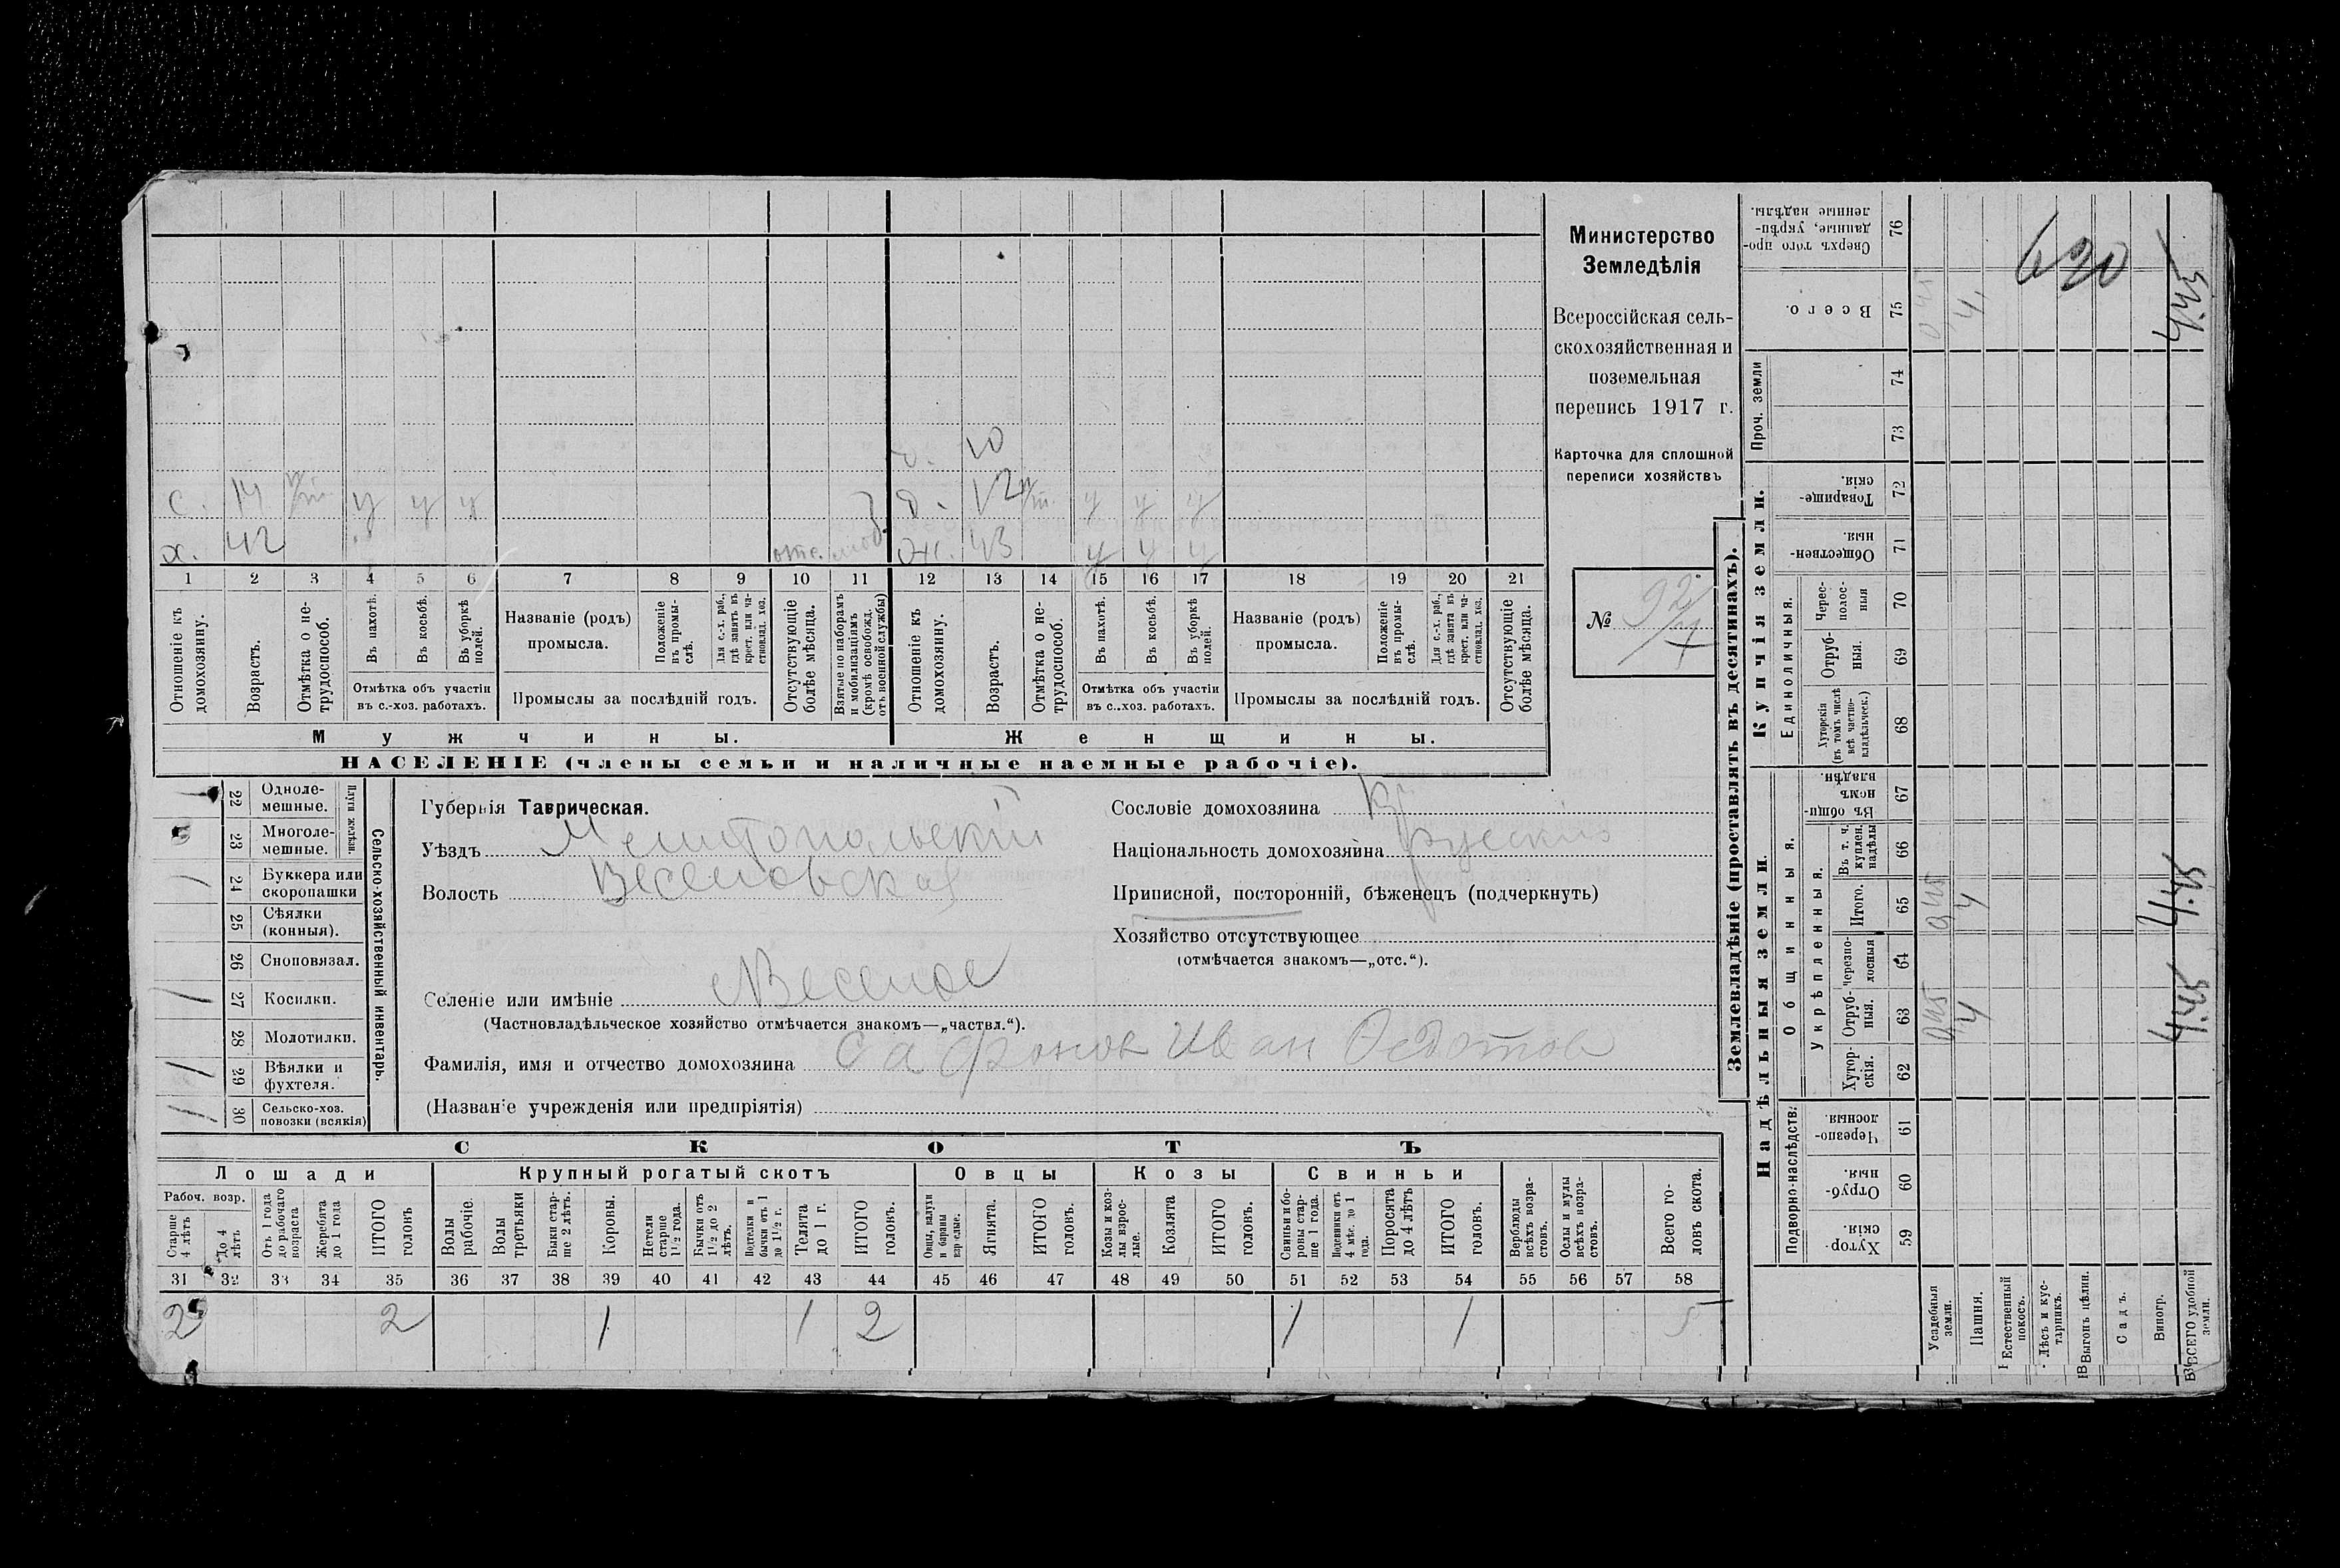 Министерство
Земледѣлія
Всероссійская сель-
скохозяйственная и
поземельная
перепись 1917 г.
Карточка для сплошной
переписи хозяйствъ
№ 92/4
д. 10
с. 14 п/т. у у у д. 12 п/т. у у у
х. 42 отс. моб. ж. 43 у у у
1 2 3 4 5 6 7 8 9 10 11 12 13 14 15 16 17 18 19 20 21
Отношеніе къ домохозяину.
Возрастъ.
Отмѣтка о не-трудоспособ.
Въ пахотѣ.
Въ косьбѣ.
Въ уборкѣ полей.
Отмѣтка объ участіи въ с.-хоз. работахъ.
Названіе (родъ) промысла.
Положеніе въ промы-слѣ.
Для с.-х. раб., гдѣ занятъ въ крест. или ча-стновлад. хоз.
Промыслы за послѣдній годъ.
Отсутствующіе болѣе мѣсяца.
Взятые по наборамъ и мобилизаціямъ (кромѣ освобожд. отъ военной службы)
Отношеніе къ домохозяину.
Возрастъ.
Отмѣтка о не-трудоспособ.
Въ пахотѣ.
Въ косьбѣ.
Въ уборкѣ полей.
Отмѣтка объ участіи въ с..хоз. работахъ.
Названіе (родъ) промысла.
Положеніе въ промы-слѣ.
Для с.-х. раб., гдѣ занята въ крест. или ча-стновлад. хоз.
Промыслы за послѣдній годъ.
Отсутствующіе болѣе мѣсяца.
Мужчины. Женщины.
НАСЕЛЕНІЕ (члены семьи и наличные наемные рабочіе).
Сельско-хозяйственный инвентарь.
Плуги желѣзн.
22 Однолемешные.
23 Многолемешные.
1 24 Буккера или скоропашки
25 Сѣялки (конныя).
26 Сноповязал.
1 27 Косилки.
28 Молотилки.
1 29 Вѣялки и фухтеля.
1 30 Сельско-хоз. повозки (всякія)
Губернія Таврическая.
Уѣздъ Мелитопольскій
Волость Веселовская
Селеніе или имѣніе Веселое
(Частновладѣльческое хозяйство отмѣчается знакомъ—„частвл.“).
Фамилія, имя и отчество домохозяина Сафонов Иван Федотов
(Названіе учрежденія или предпріятія)
Сословіе домохозяина Кр
Національность домохозяина русскій
Приписной, посторонній, бѣженецъ (подчеркнуть)
Хозяйство отсутствующее
(отмѣчается знакомъ—„отс.“).
СКОТЪ
Лошади Крупный рогатый скотъ Овцы Козы Свиньи
Рабоч. возр.
Старше 4 лѣтъ
До 4 лѣтъ
Отъ 1 года до рабочаго возраста
Жеребята до 1 года
ИТОГО головъ
Волы рабочіе.
Волы третьяки
Быки стар-ше 2 лѣтъ.
Коровы.
Нетели старше 1 1/2 года.
Бычки отъ 1 1/2 до 2 лѣтъ.
Подтелки и бычки отъ 1 до 1 1/2 г.
Телята до 1 г.
ИТОГО головъ.
Овцы, валухи и бараны взрослые.
Ягнята.
ИТОГО головъ.
Козы и коз-лы взрос-лые.
Козлята
ИТОГО головъ.
Свиньи и бо-ровы стар-ше 1 года.
Подсвинки отъ 4 мѣс. до 1 года.
Поросята до 4 лѣтъ
ИТОГО головъ.
Верблюды всѣхъ возра-стовъ.
Ослы и мулы всѣхъ возра-стовъ.
Всего го-ловъ скота.
31 32 33 34 35 36 37 38 39 40 41 42 43 44 45 46 47 48 49 50 51 52 53 54 55 56 57 58
2 2 1 1 2 1 1 5
Землевладѣніе (проставлять въ десятинахъ).
Купчія земли.
Надѣльныя земли.
Сверхъ того про-данные, укрѣп-ленные надѣлы. 76
Всего. 75
Проч. земли 74 73
Товарище-скія. 72
Обществен-ныя. 71
Единоличныя.
Черес-полос-ныя 70
Отруб-ныя. 69
Хуторскія (въ томъ числѣ всѣ частно-владѣльческ.) 68
Общинныя.
Въ общи-номъ владѣн. 67
Укрѣпленныя.
Въ т. ч. куплен. надѣлы 66
Итого. 65
Черезпо-лосныя 64
Отруб-ныя. 63
Хутор-скія. 62
Подворно-наслѣдств.
Черезпо-лосныя. 61
Отруб-ныя. 60
Хутор-скія. 59
Усадебныя земли.
Пашня.
Естественный покосъ.
Лѣсъ и кус-тарникъ.
Выгонъ цѣлин.
Садъ.
Виногр.
ВСЕГО удобной земли.
620
0.45 4 4.45
0.45 4 4.45
0.45 4 4.45